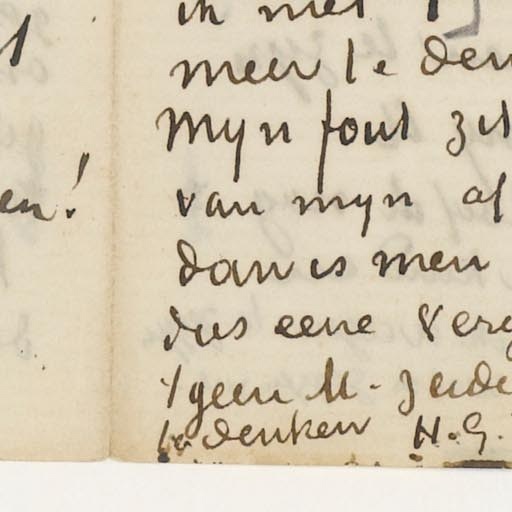 en!
ik niet
meer te den
myn fout zit
van myn af
dan is men
dus eene verg
'tgeen M. zeide
te denken H.G.